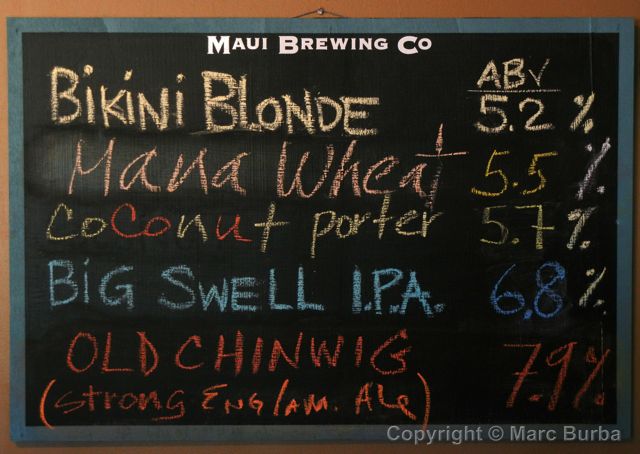 MAUI BREWING CO
ABV
BiKiNi BLONDE 5.2 %
Mana Wheat 5.5 %
CoCoNut porter 5.7 %
BiG SWELL I.P.A. 6.8 %
OLD CHINWIG 7.9%
(Strong ENG/AM. Ale)
Copyright © Marc Burba